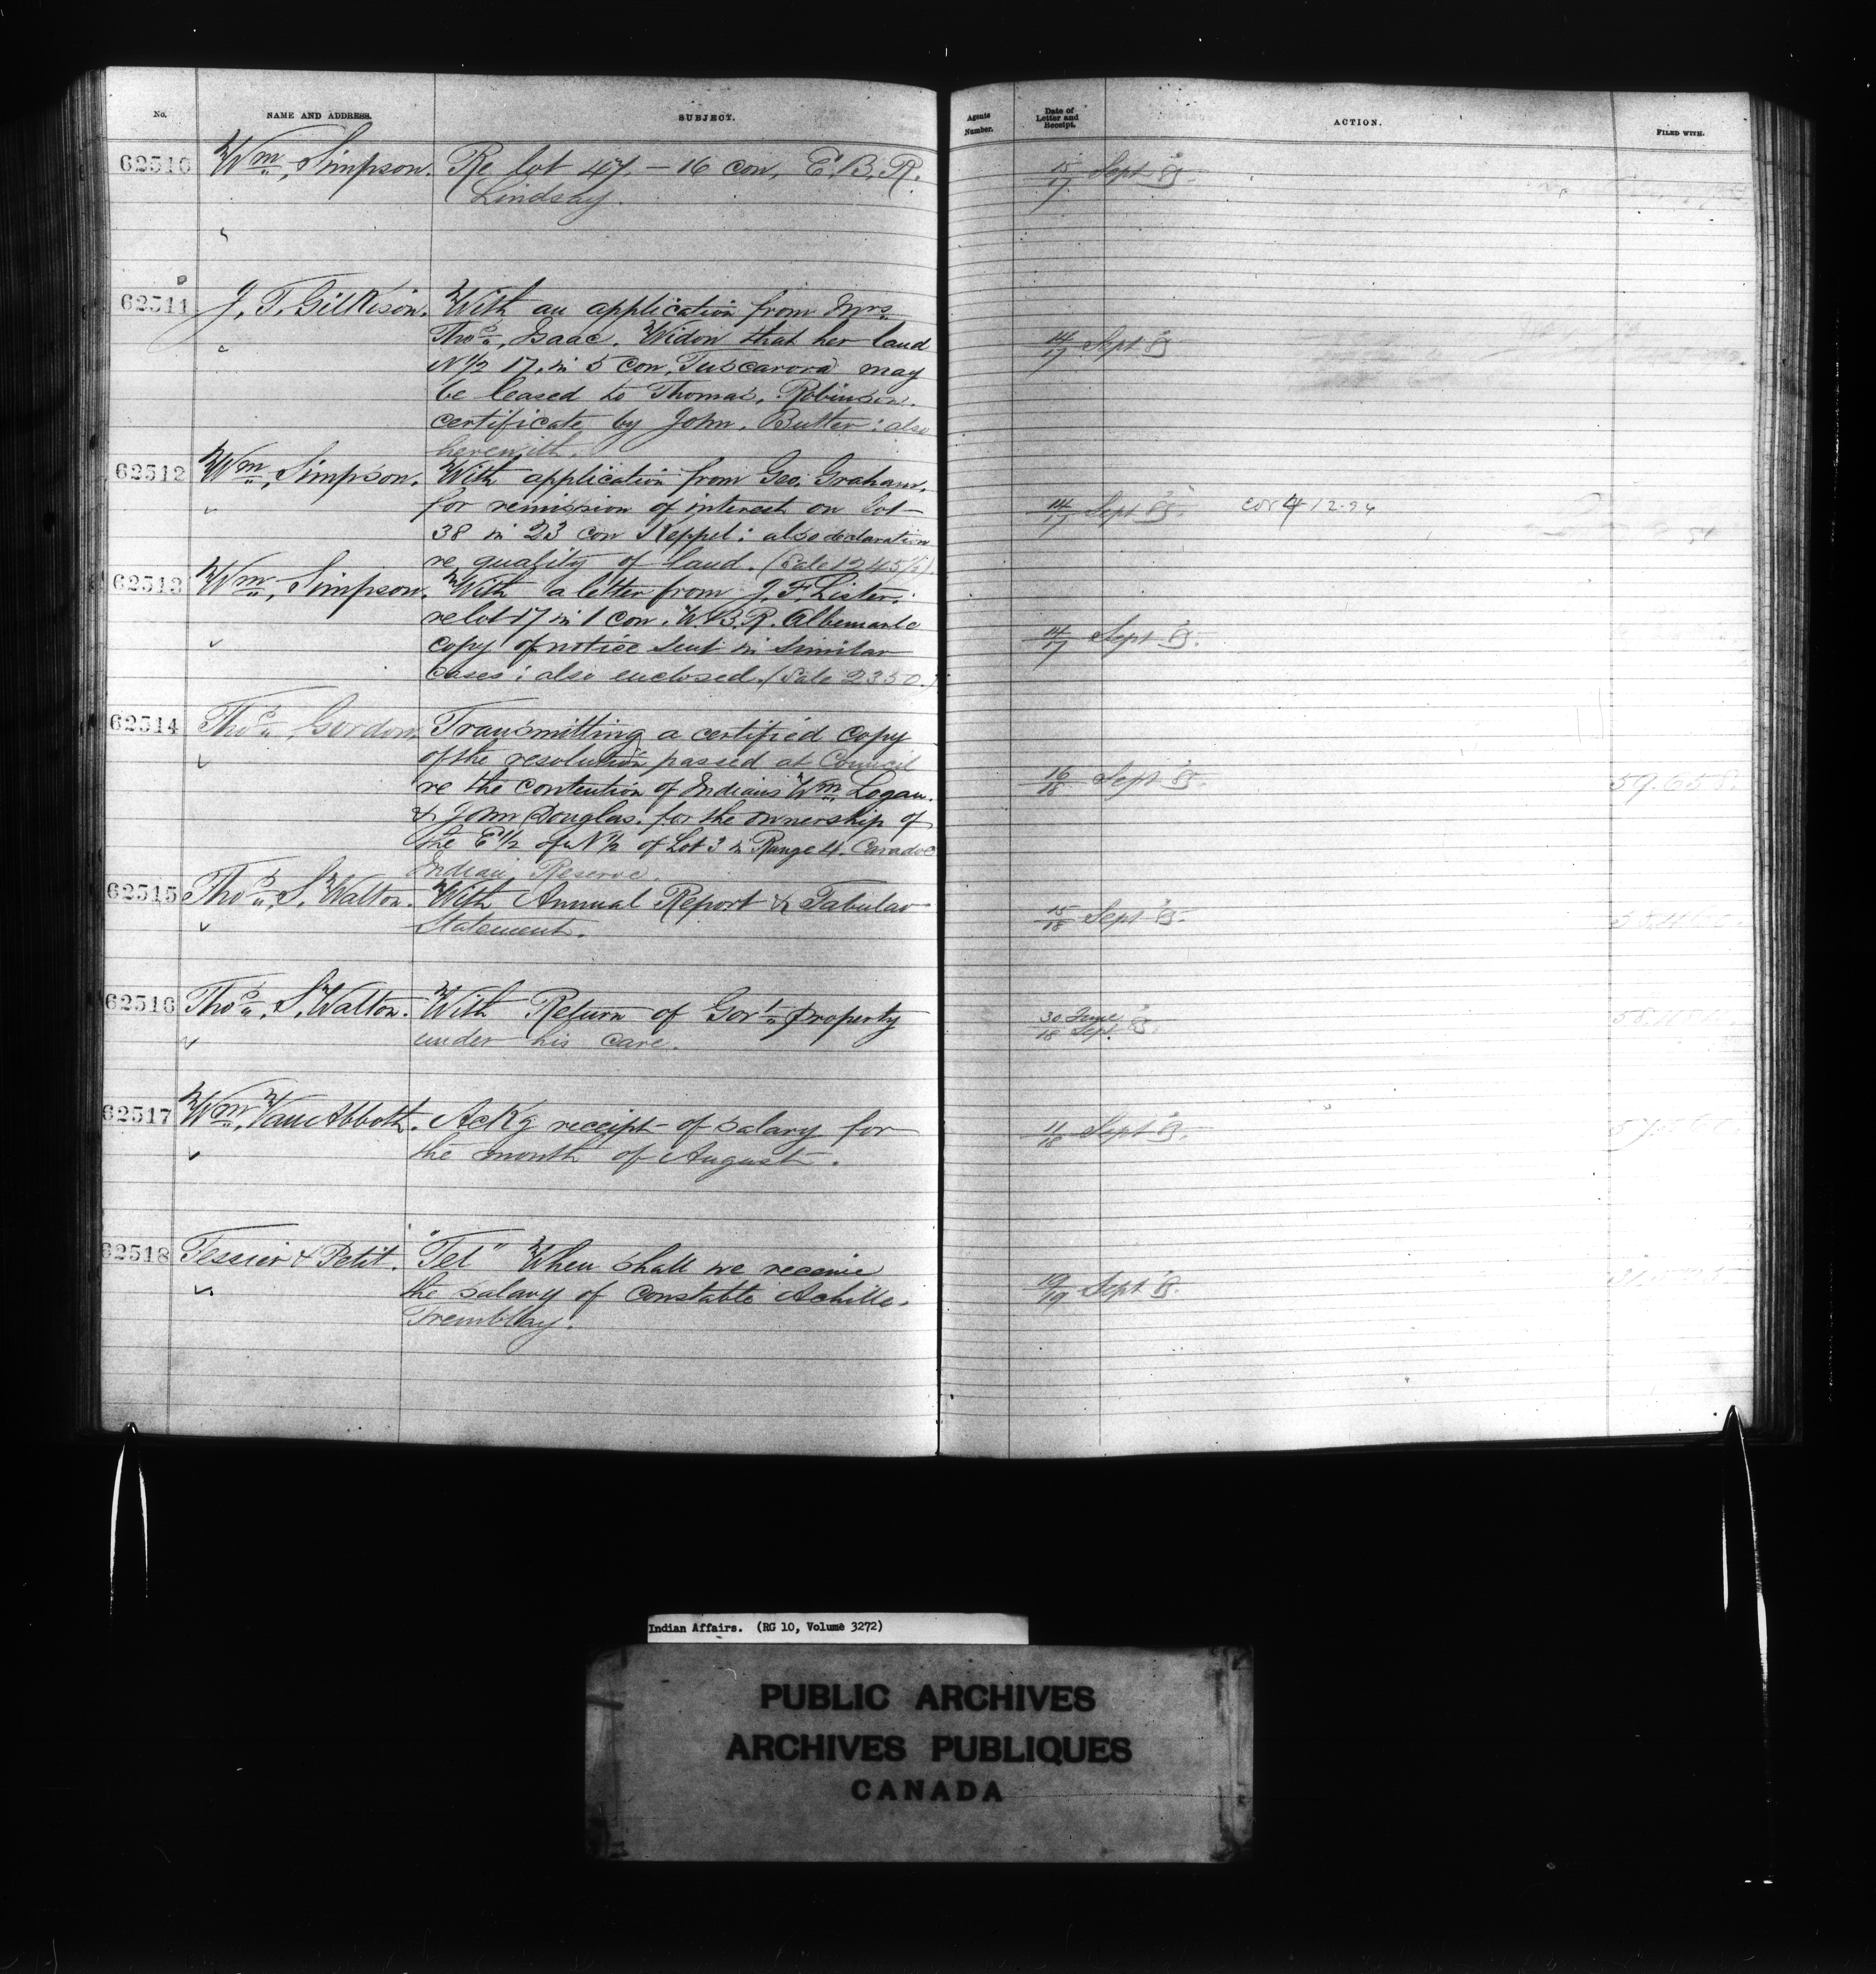 No. NAME AND ADDRESS. SUBJECT. Agents Number. Date of Letter and Receipt. ACTION. FILED WITH.
62510 Wm. Simpson. Re lot 47 – 16 con. E.B.R. 15/17 Sept 85.
Lindsay.
62511 J. T. Gilkison. With an application from Mrs.
Thos. Isaac. Widow that her land 14/17 Sept 85
N 1/2 17. in 5 con. Tuscarora may
be leased to Thomas. Robinson.
certificate by John. Butler: also
herewith.
62512 Wm. Simpson. With application from Geo. Graham.
for remission of interest on Lot 14/17 Sept 85. cor 4/12-94
38 in 23 con Keppel: also declaration
re quality of land. (Sale 12451/2)
62513 Wm. Simpson. With a letter from J. F. Lister.
re lot 17 in 1 con. W.B.R. Albemarle 14/17 Sept 85.
copy of notice sent in similar
cases: also enclosed. (Sale 2350.)
62514 Thos. Gordon. Transmitting a certified copy
of the resolution passed at Council
re the contention of Indians Wm. Logan. 16/18 Sept 85. 59.658.
& John Douglas. for the ownership of
the E 1/2 of N 1/2 of Lot 3 in Range 4. Caradoc
Indian Reserve.
62515 Thos. S. Walton. With Annual Report & Tabular
Statement. 15/18 Sept 85.
62516 Thos. S. Walton. With Return of Govt. property 30 June
under his care. 18 Sept. 85.
62517 Wm. Van Abbott. Ackg receipt of salary for 11/18 Sept 85.
the month of August.
62518 Tessier & Petit. "Tel" When shall we receive
the salary of Constable Achille. 19/19 Sept 85.
Tremblay.
Indian Affairs. (RG 10, Volume 3272)
PUBLIC ARCHIVES
ARCHIVES PUBLIQUES
CANADA